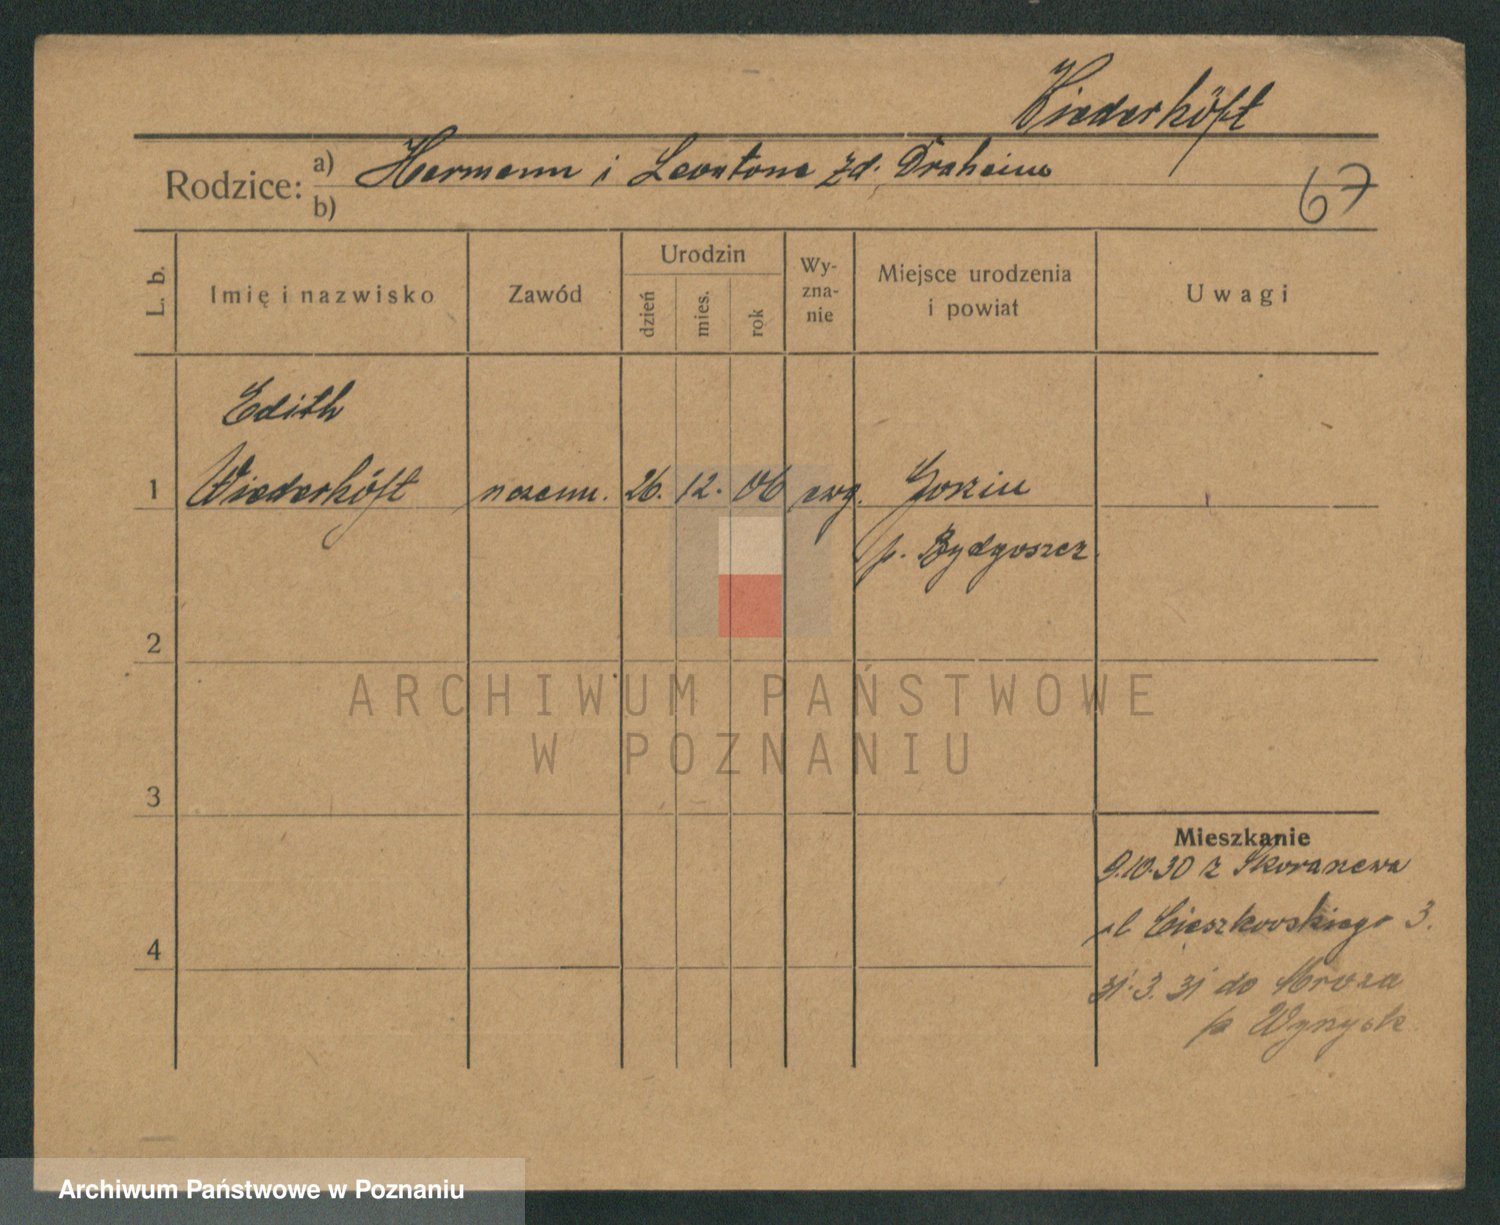 Wiederhöft
Rodzice: a) Hermann i Leontone zd. Draheim
b)
67
L. b. Imię i nazwisko Zawód Urodzin dzień mies. rok Wy-zna-nie Miejsce urodzenia i powiat Uwagi
Edith
1 Wiederhöft 26. 12. 06 ewg.
p. Bydgoszcz
2
ARCHIWUM PAŃSTWOWE
W POZNANIU
3
Mieszkanie
9.10.30 z
ul Cieszkowskiego 3.
4
31.3.31 do Mrocza
p Wyrzysk
Archiwum Państwowe w Poznaniu